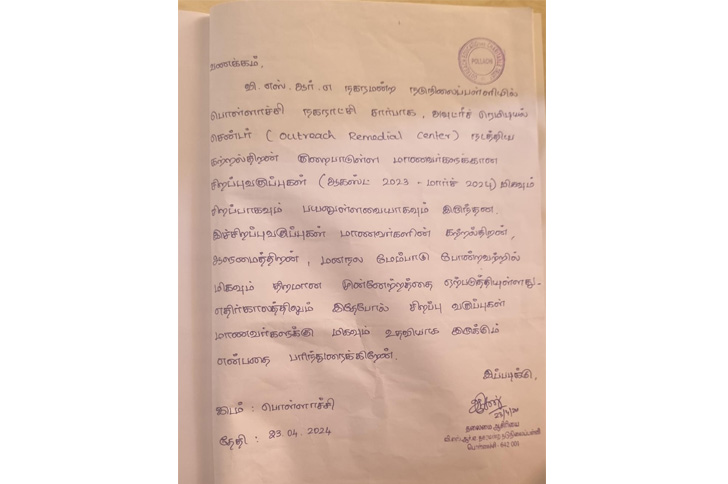 வணக்கம்,
POLLACHI
வி.எஸ்.ஆர்.எ நகரமன்ற நடுநிலைப்பள்ளியில்
பொள்ளாச்சி நகராட்சி சார்பாக, அவுட்ரீச் ரெமிடியல்
சென்டர் ( Outreach Remedial Center) நடத்திய
கற்றல்திறன் குறைபாடுள்ள மாணவர்களுக்கான
சிறப்புவகுப்புகள் (ஆகஸ்ட் 2023 - மார்ச் 2024) மிகவும்
சிறப்பாகவும் பயனுள்ளவையாகவும் இருந்தன.
இச்சிறப்புவகுப்புகள் மாணவர்களின் கற்றல்திறன்,
ஆளுமைத்திறன், மனநல மேம்பாடு போன்றவற்றில்
மிகவும் திறமான முன்னேற்றத்தை ஏற்படுத்தியுள்ளது.
எதிர்காலத்திலும் இதேபோல் சிறப்பு வகுப்புகள்
மாணவர்களுக்கு மிகவும் உதவியாக இருக்கும்
என்பதை பரிந்துரைக்கிறேன்.
இப்படிக்கு,
இடம் : பொள்ளாச்சி
தேதி : 23.04.2024
தலைமை ஆசிரியை
நகரமன்ற நடுநிலைப்பள்ளி
பொள்ளாச்சி - 642 001